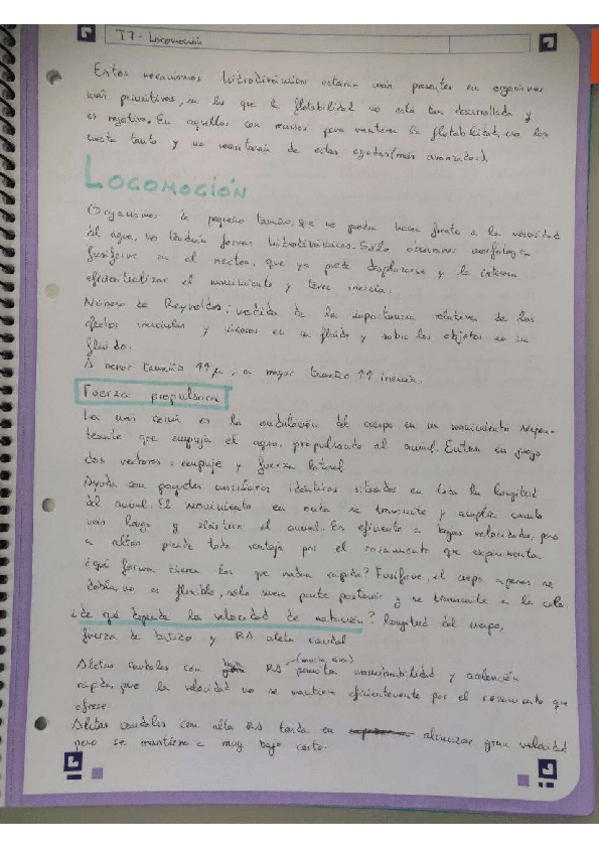 T7 - Locomoción
Estos mecanismos hidrodinámicos estarán más presentes en organismos
más primitivos, en los que la flotabilidad no está tan desarrollada y
es negativa. En aquellos con mayor para mantener la flotabilidad, no les
cuesta tanto y no necesitarán de estas ayudas (más avanzados).
LOCOMOCIÓN
Organismos de pequeño tamaño, que no pueden hacer frente a la velocidad
del agua, no tendrán formas hidrodinámicas. Sólo observamos morfología
fusiforme en el necton, que ya puede desplazarse y le interesa
eficientializar el movimiento y tener inercia.
Número de Reynolds: medida de la importancia relativa de los
efectos inerciales y viscosos en un fluido y sobre los objetos en un
fluido.
A menor tamaño ↑↑ μ, a mayor tamaño ↑↑ inercia.
Fuerza propulsora
La más común es la ondulación del cuerpo en un movimiento serpen-
teante que empuja el agua, propulsando al animal. Entran en juego
dos vectores: empuje y fuerza lateral
Ayuda con paquetes musculares idénticos situados en toda la longitud
del animal. El movimiento en onda se transmite y amplía cuanto
más largo y elástico el animal. Es eficiente a bajas velocidades, pero
a altas pierde toda ventaja por el rozamiento que experimenta
¿qué forma tienen los que nadan rápido? Fusiforme, el cuerpo apenas se
dobla, no es flexible, sólo mueve parte posterior y se transmite a la cola.
¿de qué depende la velocidad de natación? longitud del cuerpo,
fuerza de batido y RA aleta caudal
Aletas caudales con RA (mucha área) permite maniobrabilidad y aceleración
rápida, pero la velocidad no se mantiene eficientemente por el rozamiento que
ofrece.
Aletas caudales con alta RA tarda en alcanzar gran velocidad
pero se mantiene a muy bajo coste.